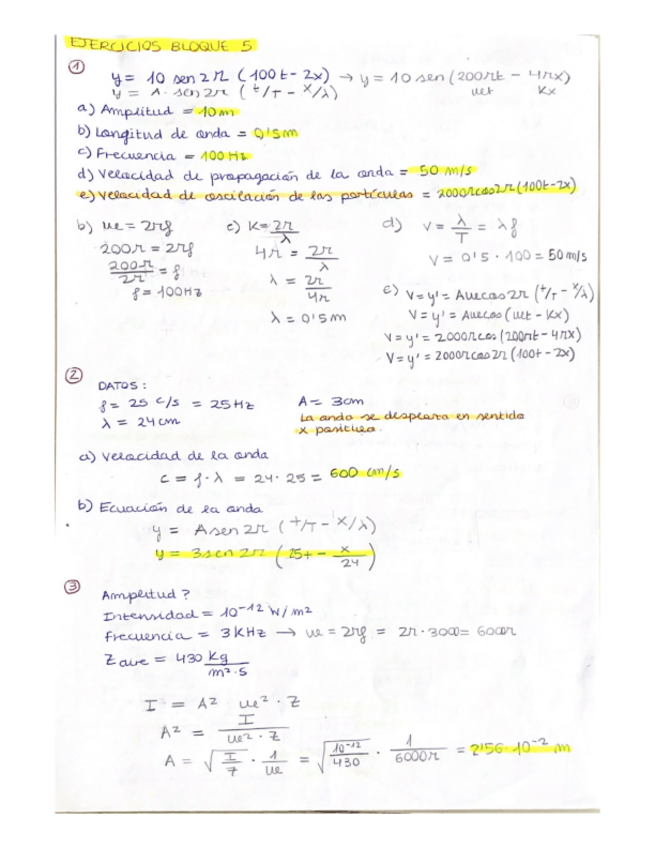 EJERCICIOS BLOQUE 5
①
y = 10 sen 2π (100t - 2x) → y = 10 sen (200πt - 4πx)
y = A · sen 2π (t/T - x/λ) wt kx
a) Amplitud = 10m
b) Longitud de onda = 0'5m
c) Frecuencia = 100 Hz
d) Velocidad de propagación de la onda = 50 m/s
e) Velocidad de oscilación de las partículas = 2000π cos 2π (100t - 2x)
b) w = 2πf
200π = 2πf
200π/2π = f
f = 100 Hz
c) K = 2π/λ
4π = 2π/λ
λ = 2π/4π
λ = 0'5m
d) V = λ/T = λf
V = 0'5 · 100 = 50 m/s
e) V = y' = Aw cos 2π (t/T - x/λ)
V = y' = Aw cos (wt - kx)
V = y' = 2000π cos (200πt - 4πx)
V = y' = 2000π cos 2π (100t - 2x)
②
DATOS:
f = 25 c/s = 25 Hz
λ = 24 cm
A = 3cm
La onda se desplaza en sentido
x positivo.
a) Velocidad de la onda
c = f · λ = 24 · 25 = 600 cm/s
b) Ecuación de la onda
y = A sen 2π (t/T - x/λ)
y = 3 sen 2π (25t - x/24)
③
Amplitud?
Intensidad = 10⁻¹² W/m²
Frecuencia = 3 KHz → w = 2πf = 2π · 3000 = 6000π
Z aire = 430 Kg/m²·s
I = A² w² · Z
A² = I/(w² · Z)
A = √(I/Z) · 1/w = √(10⁻¹²/430) · 1/6000π = 2'56·10⁻² m